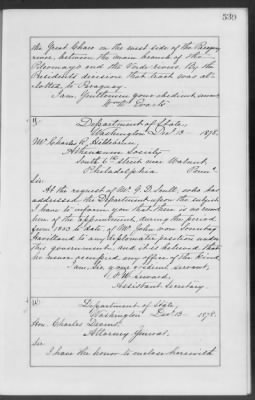 539
the Great Chaco on the west side of the Paraguay
river, between the main branch of the
Pilcomayo and the Verde rivers. By the
President's decision that tract was al-
lotted to Paraguay.
I am, Gentlemen your obedient servant
Wm M. Evarts
Department of State,
Washington Decr 13 1878.
Mr Charles R. Hildeburn,
Athenæum Society
South 6th Street near Walnut,
Philadelphia Penna
Sir
At the request of Mr G. D. Scull, who has
addressed the Department upon the subject
I have to inform you that there is no record
here of the appointment, during the period
from 1803 to date, of Mr John von Sonntag
Havilland to any diplomatic position under
this government, and it is believed that
he never occupied any office of the kind
I am, Sir, your obedient servant,
F. W. Seward,
Assistant Secretary
Department of State,
Washington Decr 13 1878.
Hon. Charles Devens,
Attorney General.
Sir
I have the honor to enclose herewith